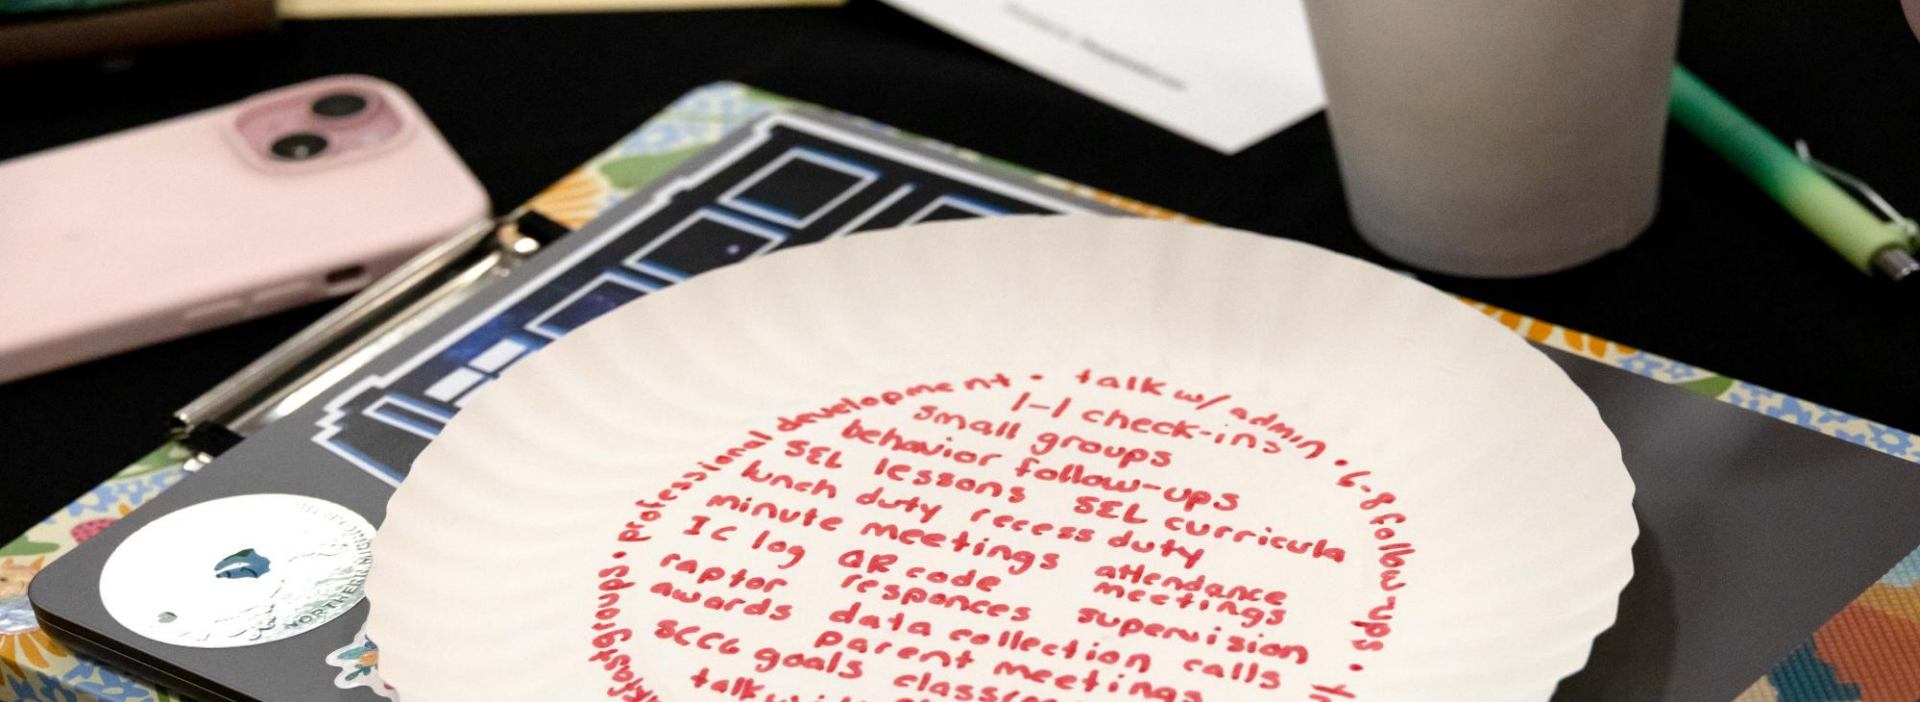 professional development • talk w/ admin • 6-8 follow-ups •
1-1 check-ins
small groups
behavior follow-ups
SEL lessons SEL curricula
lunch duty recess duty
minute meetings attendance meetings
IC log QR code responces supervision
raptor data collection calls
awards parent meetings
SCCG goals
talk
groups •
NORTHERN